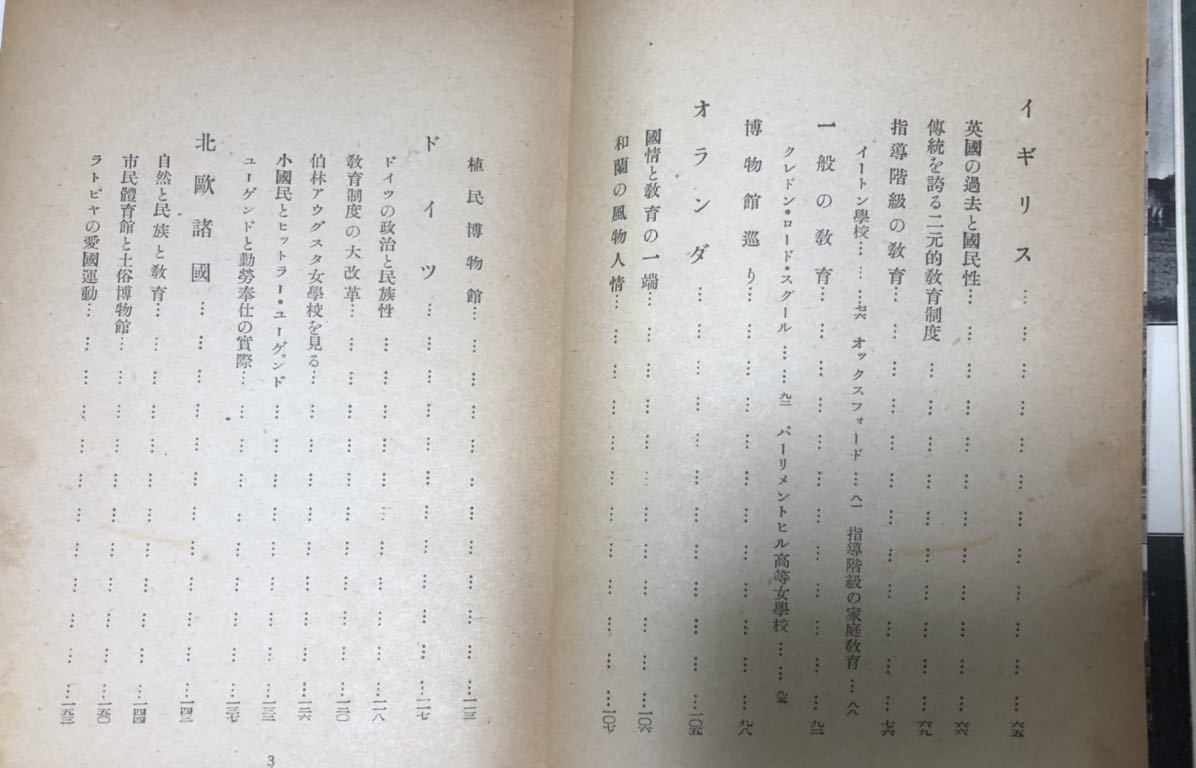 イギリス…………………………六五
英國の過去と國民性…………………………六六
傳統を誇る二元的敎育制度…………………………六九
指導階級の敎育…………………………七六
イートン學校………七六 オックスフォード…八一 指導階級の家庭敎育…八八
一般の敎育…………………………九二
クレドン・ロード・スクール……九二 パーリメントヒル高等女學校……九五
博物館巡り…………………………九八
オランダ…………………………一〇五
國情と敎育の一端…………………………一〇六
和蘭の風物人情…………………………一〇七
植民博物館…………………………一一三
ドイツ…………………………一一七
ドイツの政治と民族性…………………………一一八
敎育制度の大改革…………………………一二〇
伯林アウグスタ女學校を見る…………………………一二六
小國民とヒットラー・ユーゲンド…………………………一三二
ユーゲンドと勤勞奉仕の實際…………………………一三七
北歐諸國…………………………一四三
自然と民族と敎育…………………………一四四
市民體育館と土俗博物館…………………………一五〇
ラトビヤの愛國運動…………………………一五三
3